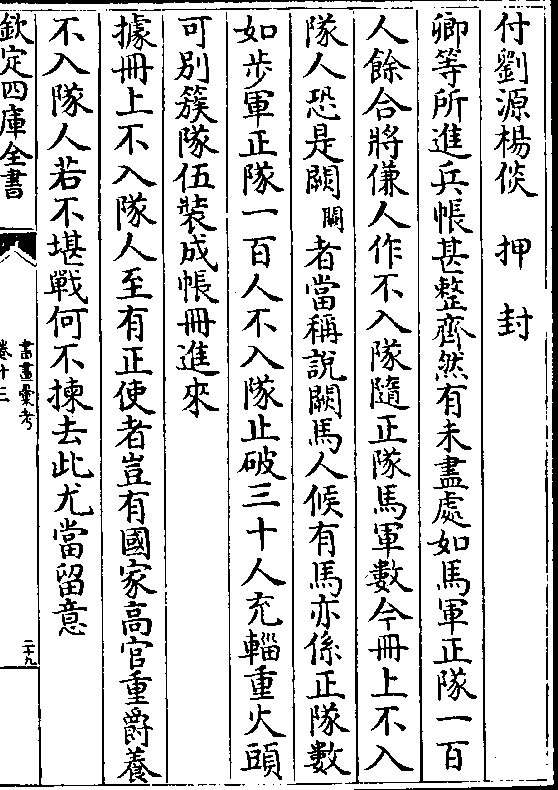 付劉源楊倓　押　封
卿等所進兵帳甚整齊然有未盡處如馬軍正隊一百
人餘合將傔人作不入隊隨正隊馬軍數今冊上不入
隊人恐是闕闗者當稱說闕馬人候有馬亦係正隊數
如步軍正隊一百人不入隊止破三十人充輜重火頭
可別簇隊伍裝成帳冊進來
據冊上不入隊人至有正使者豈有國家高官重爵養
不入隊人若不堪戰何不揀去此尤當留意
欽定四庫全書
書畫彙考
卷十三
二十九